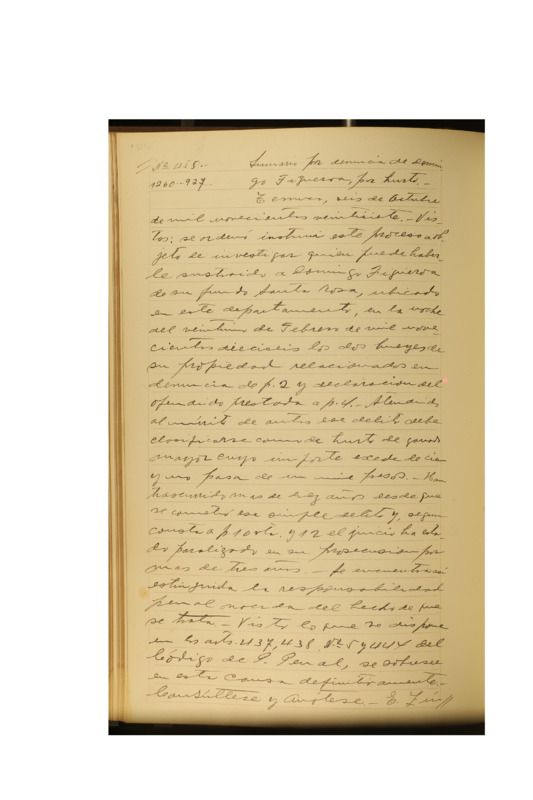 No. 415.- Sumario por denuncia de Domin-
1260-927. go Figueroa, por hurto.-
Temuco, seis de Octubre
de mil novecientos veintisiete.- Vis-
tos: se ordenó instruir este proceso a ob-
jeto de investigar quien puede haber-
le sustraido a Domingo Figueroa
de su fundo Santa Rosa, ubicado
en este departamento, en la noche
del veintiuno de Febrero de mil nove-
cientos dieciseis los dos bueyes de
su propiedad relacionados en
denuncia de p. 2 y declaracion del
ofendido prestada a p. 4.- Atendido
al mérito de autos ese delito debe
clasificarse como de hurto de ganado
mayor cuyo importe excede de cien
y no pasa de un mil pesos.- Han
trascurrido mas de diez años desde que
se cometió ese simple delito y, segun
consta a p 10 vta. y 12 el juicio ha esta-
do paralizado en su prosecusion por
mas de tres años.- Se encuentra asi
estinguida la responsabilidad
penal nacida del hecho de que
se trata.- Visto lo que se dispone
en los arts. 437, 438 No. 5 y 444 del
Código de P. Penal, se sobresee
en esta causa definitivamente.-
Consúltese y Anótese.- E.